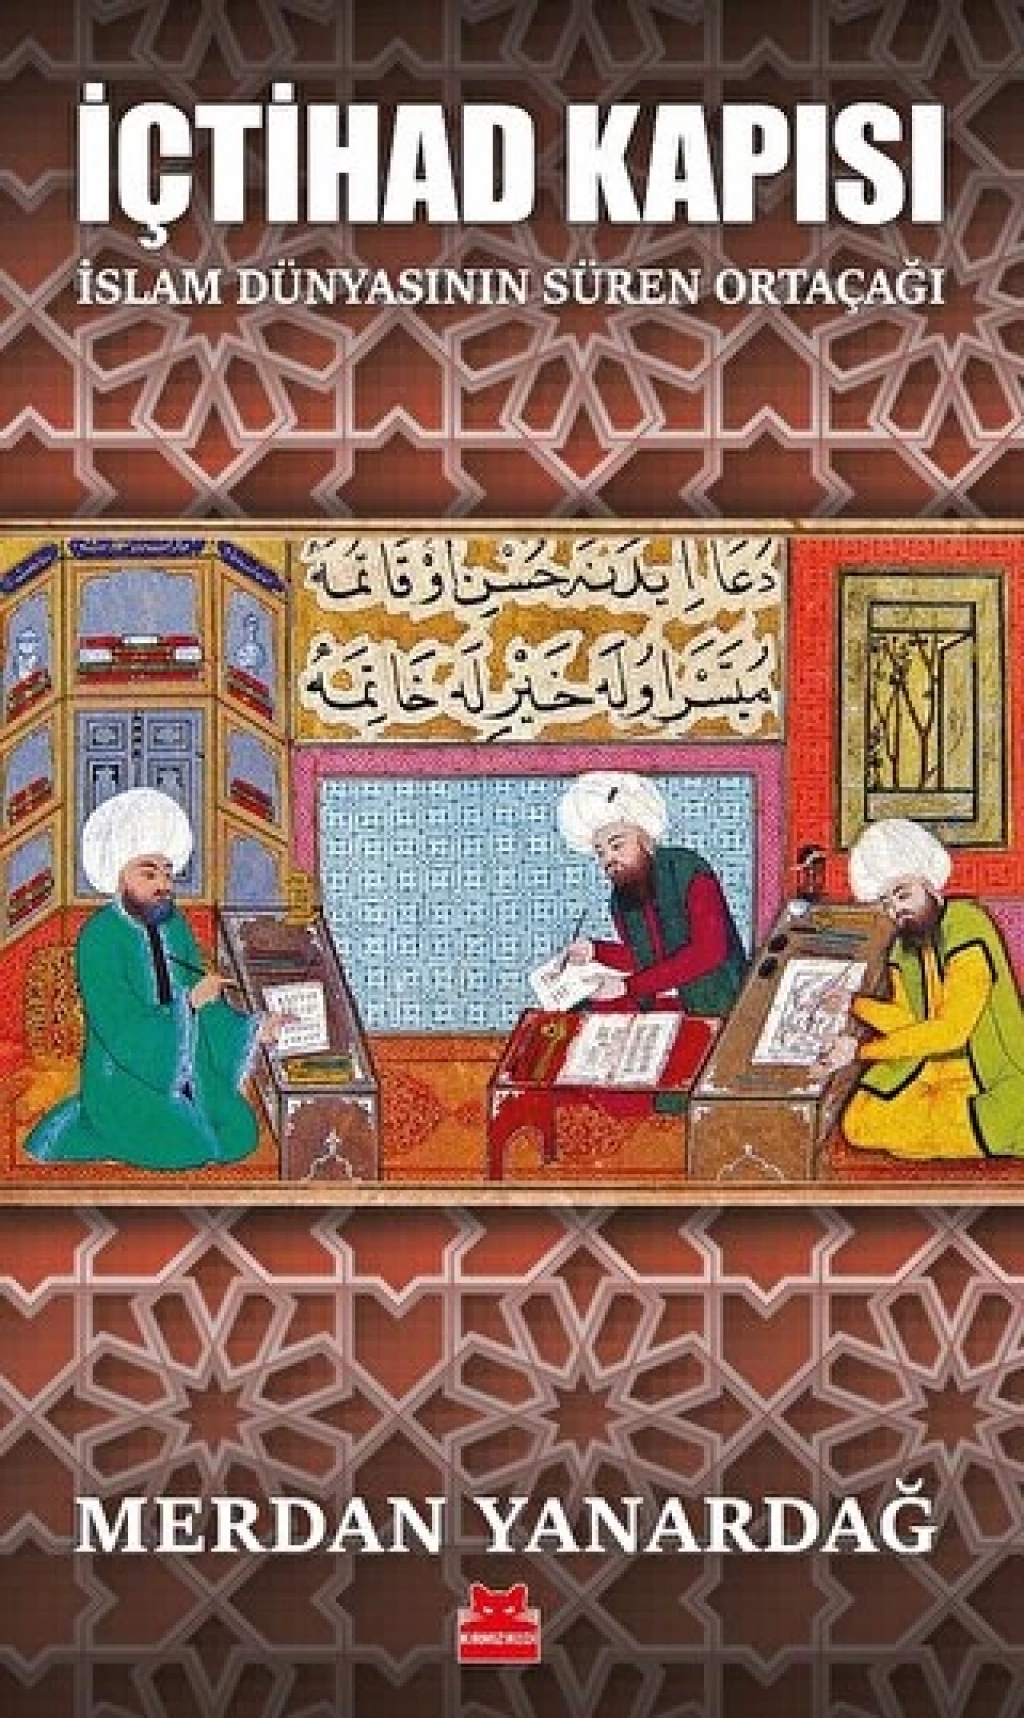 İÇTİHAD KAPISI
İSLAM DÜNYASININ SÜREN ORTAÇAĞI
دَعَا اِيدَنَه حُسْنِ اَوْقَاتمَه
مُيَسَّر اولَه خَيْرِلَه خَاتِمَه
MERDAN YANARDAĞ
KIRMIZI KEDİ